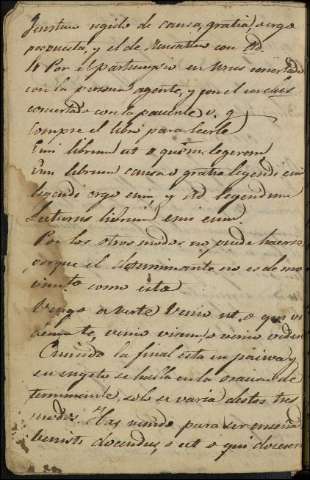 genitivo regido de causa, gratia, o ergo
propuesta, y el de Acusativo con ad
4 Por el participio en urus concertado
con la persona agente, y por el en dus
concertado con la paciente v. g.
Compre el libro para leerle
Emi librum ut o quo eum legerem
Emi librum causa o gratia legendi eum
legendi ergo eum, y ad legendum
Lecturus librum emi eum.
Por los otros modos no puede hacerse
porque el determinante no es de mo
vimiento como este
Vengo a verte Venio ut, o qui vi
deam te, venio visum, o venio videre
Cuando la final esta en pasiva, y
en ingles se halla en la oracion de
terminante, solo se varia de estos tres
modos. Has venido para ser enseñado
Venisti docendus, o ut o qui docereris